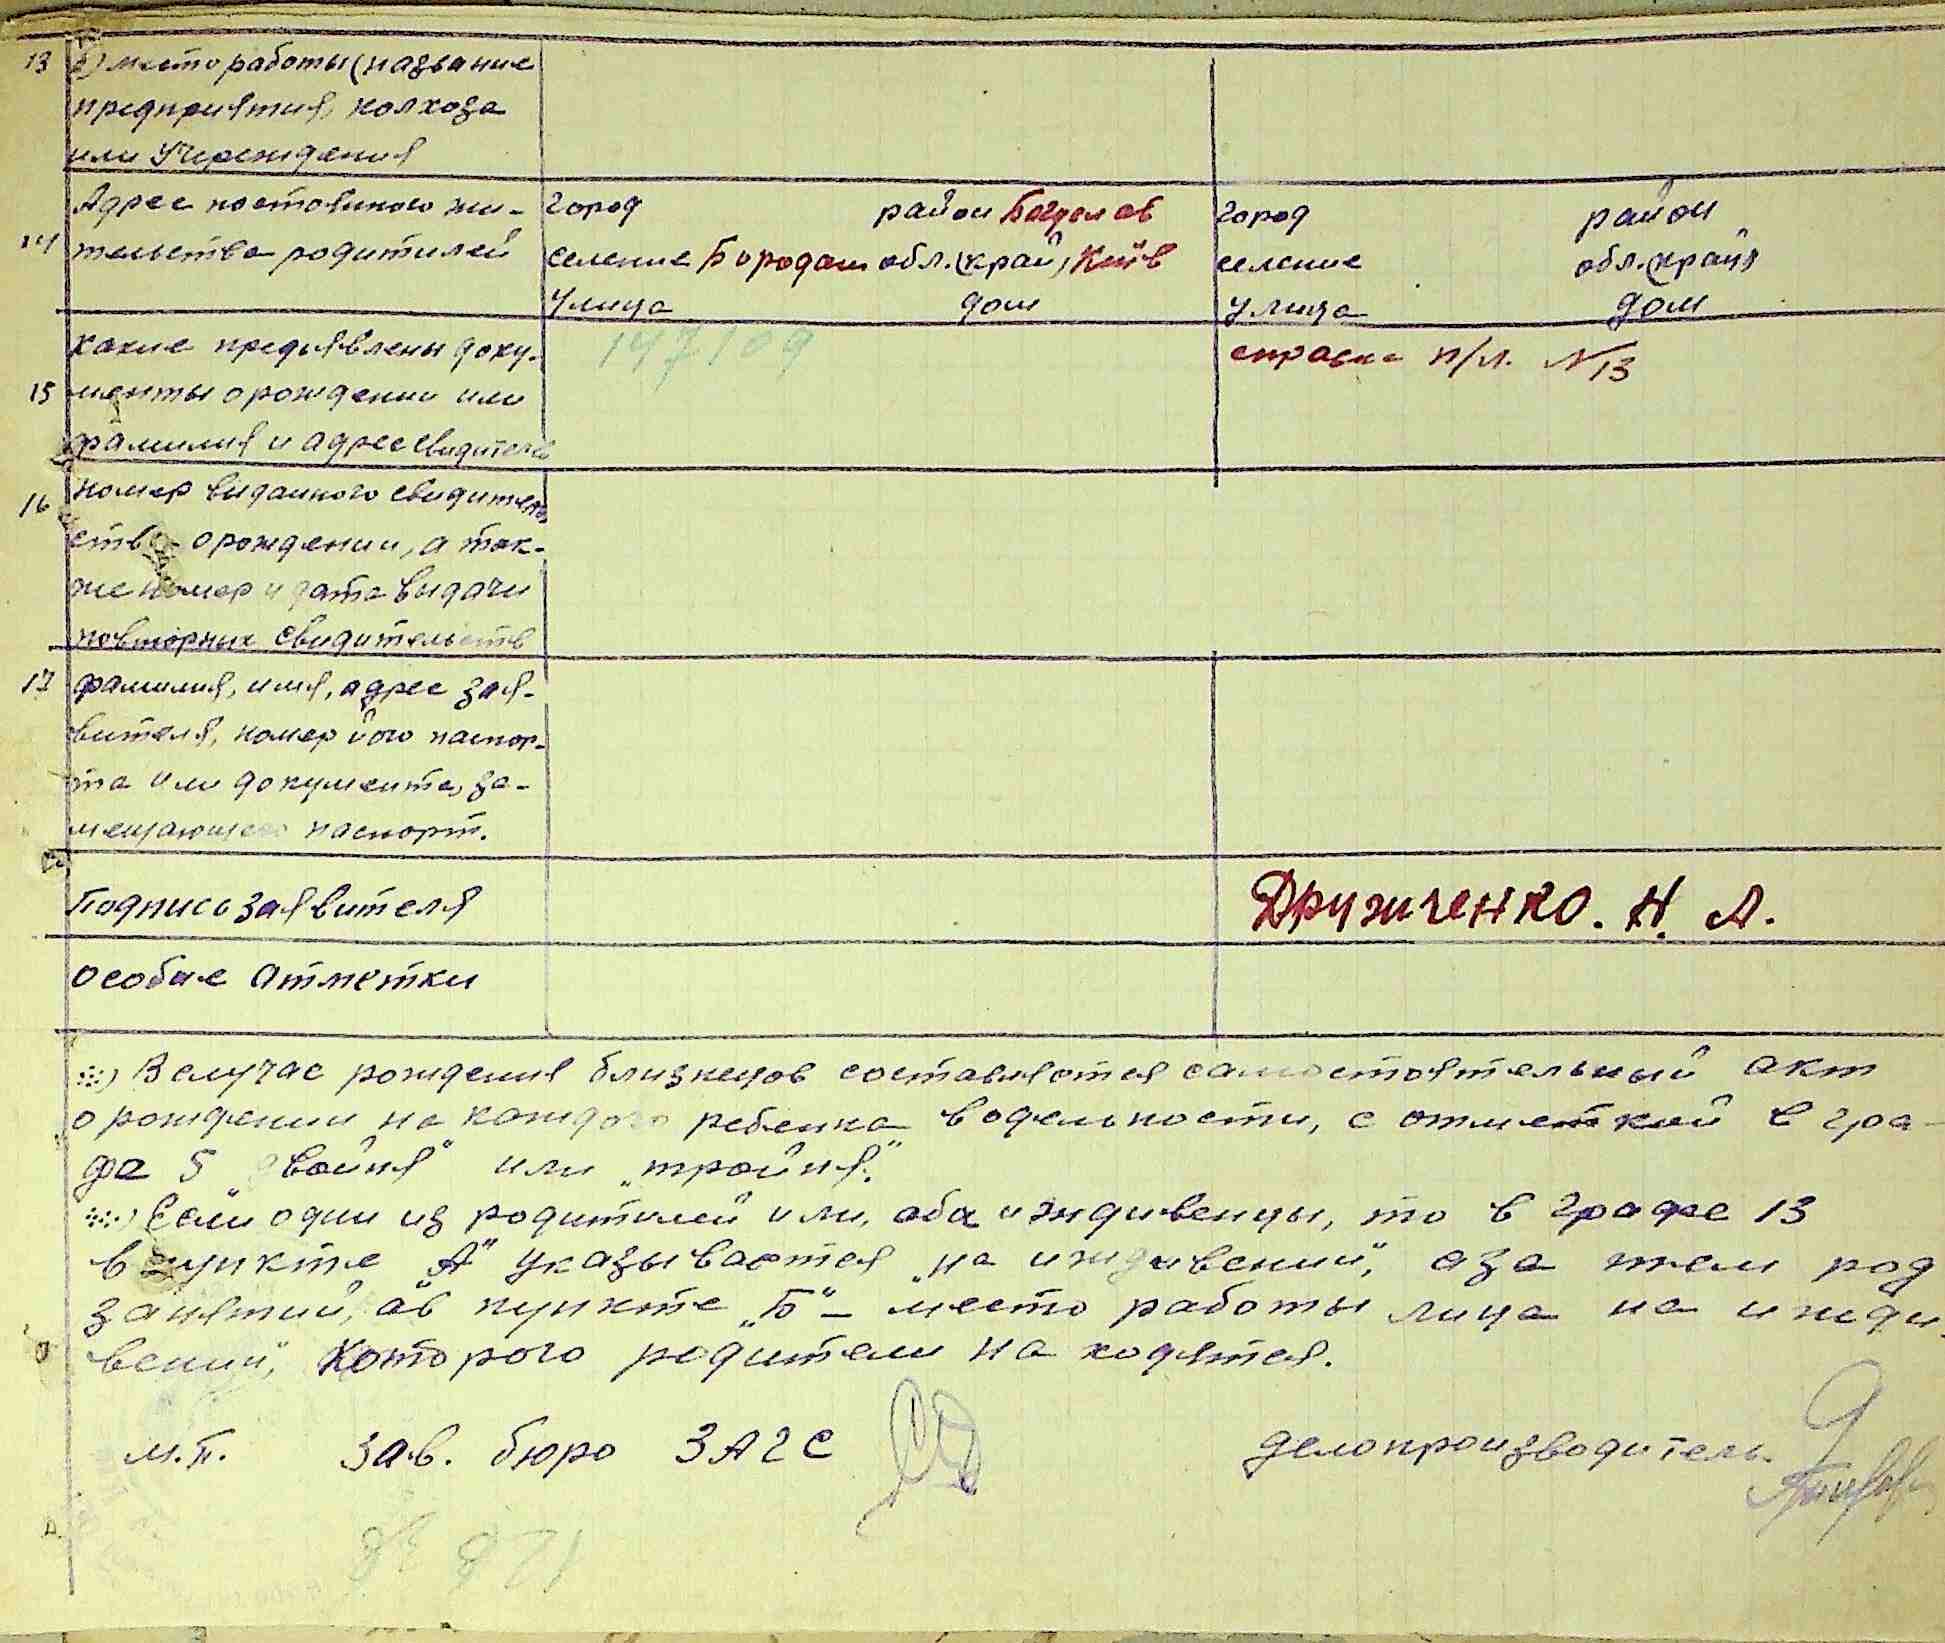 13 б) место работы (название
предприятия, колхоза
или Учреждения
Адрес постояного жи-
14 тельства родителей
город район Богуслав
селение Бородани обл. (край) Київ
Улица дом
город район
селение обл. (край)
Улица дом
какие предъявлены доку-
15 менты о рождении или
фамилия и адрес свидителей
147109
справка п/л. N 13
16 номер виданого свидитель
ства о рождении, а так-
же номер и дата видачи
повторных свидительств
17 фамилия, имя, адрес зая-
вителя, номер його паспор-
та или документа, за-
мещающего паспорт.
Подпись заявителя
Дружченко. Н. А.
Особые атметки
Вслучае рождения близнецов составляется самостоятельный акт
о рождении на каждого ребенка водельности, с отметкой в гра-
фе 5 „двойня" или „тройня."
Если один из родителей или, оба иждивенцы, то в графе 13
в пункте „А" указывается „на иждивении", а за тем род
занятий, а в пункте „Б" – место работы лица на ижди-
вении", которого родители на ходятся.
м.п. Зав. бюро ЗАГС
делопроизводитель.